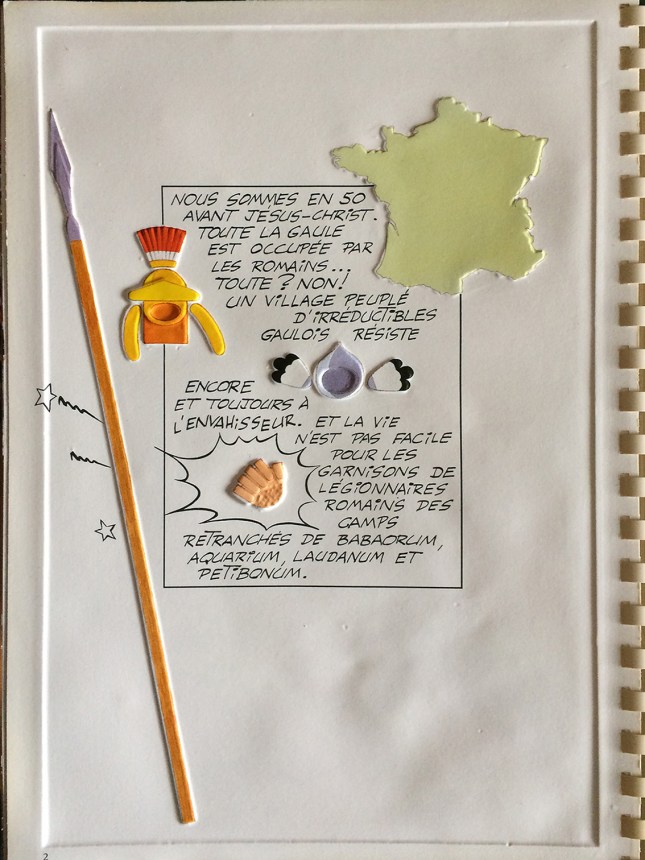 NOUS SOMMES EN 50
AVANT JÉSUS-CHRIST.
TOUTE LA GAULE
EST OCCUPÉE PAR
LES ROMAINS...
TOUTE ? NON!
UN VILLAGE PEUPLÉ
D'IRRÉDUCTIBLES
GAULOIS RÉSISTE
ENCORE
ET TOUJOURS À
L'ENVAHISSEUR. ET LA VIE
N'EST PAS FACILE
POUR LES
GARNISONS DE
LÉGIONNAIRES
ROMAINS DES
CAMPS
RETRANCHÉS DE BABAORUM,
AQUARIUM, LAUDANUM ET
PETIBONUM.
2